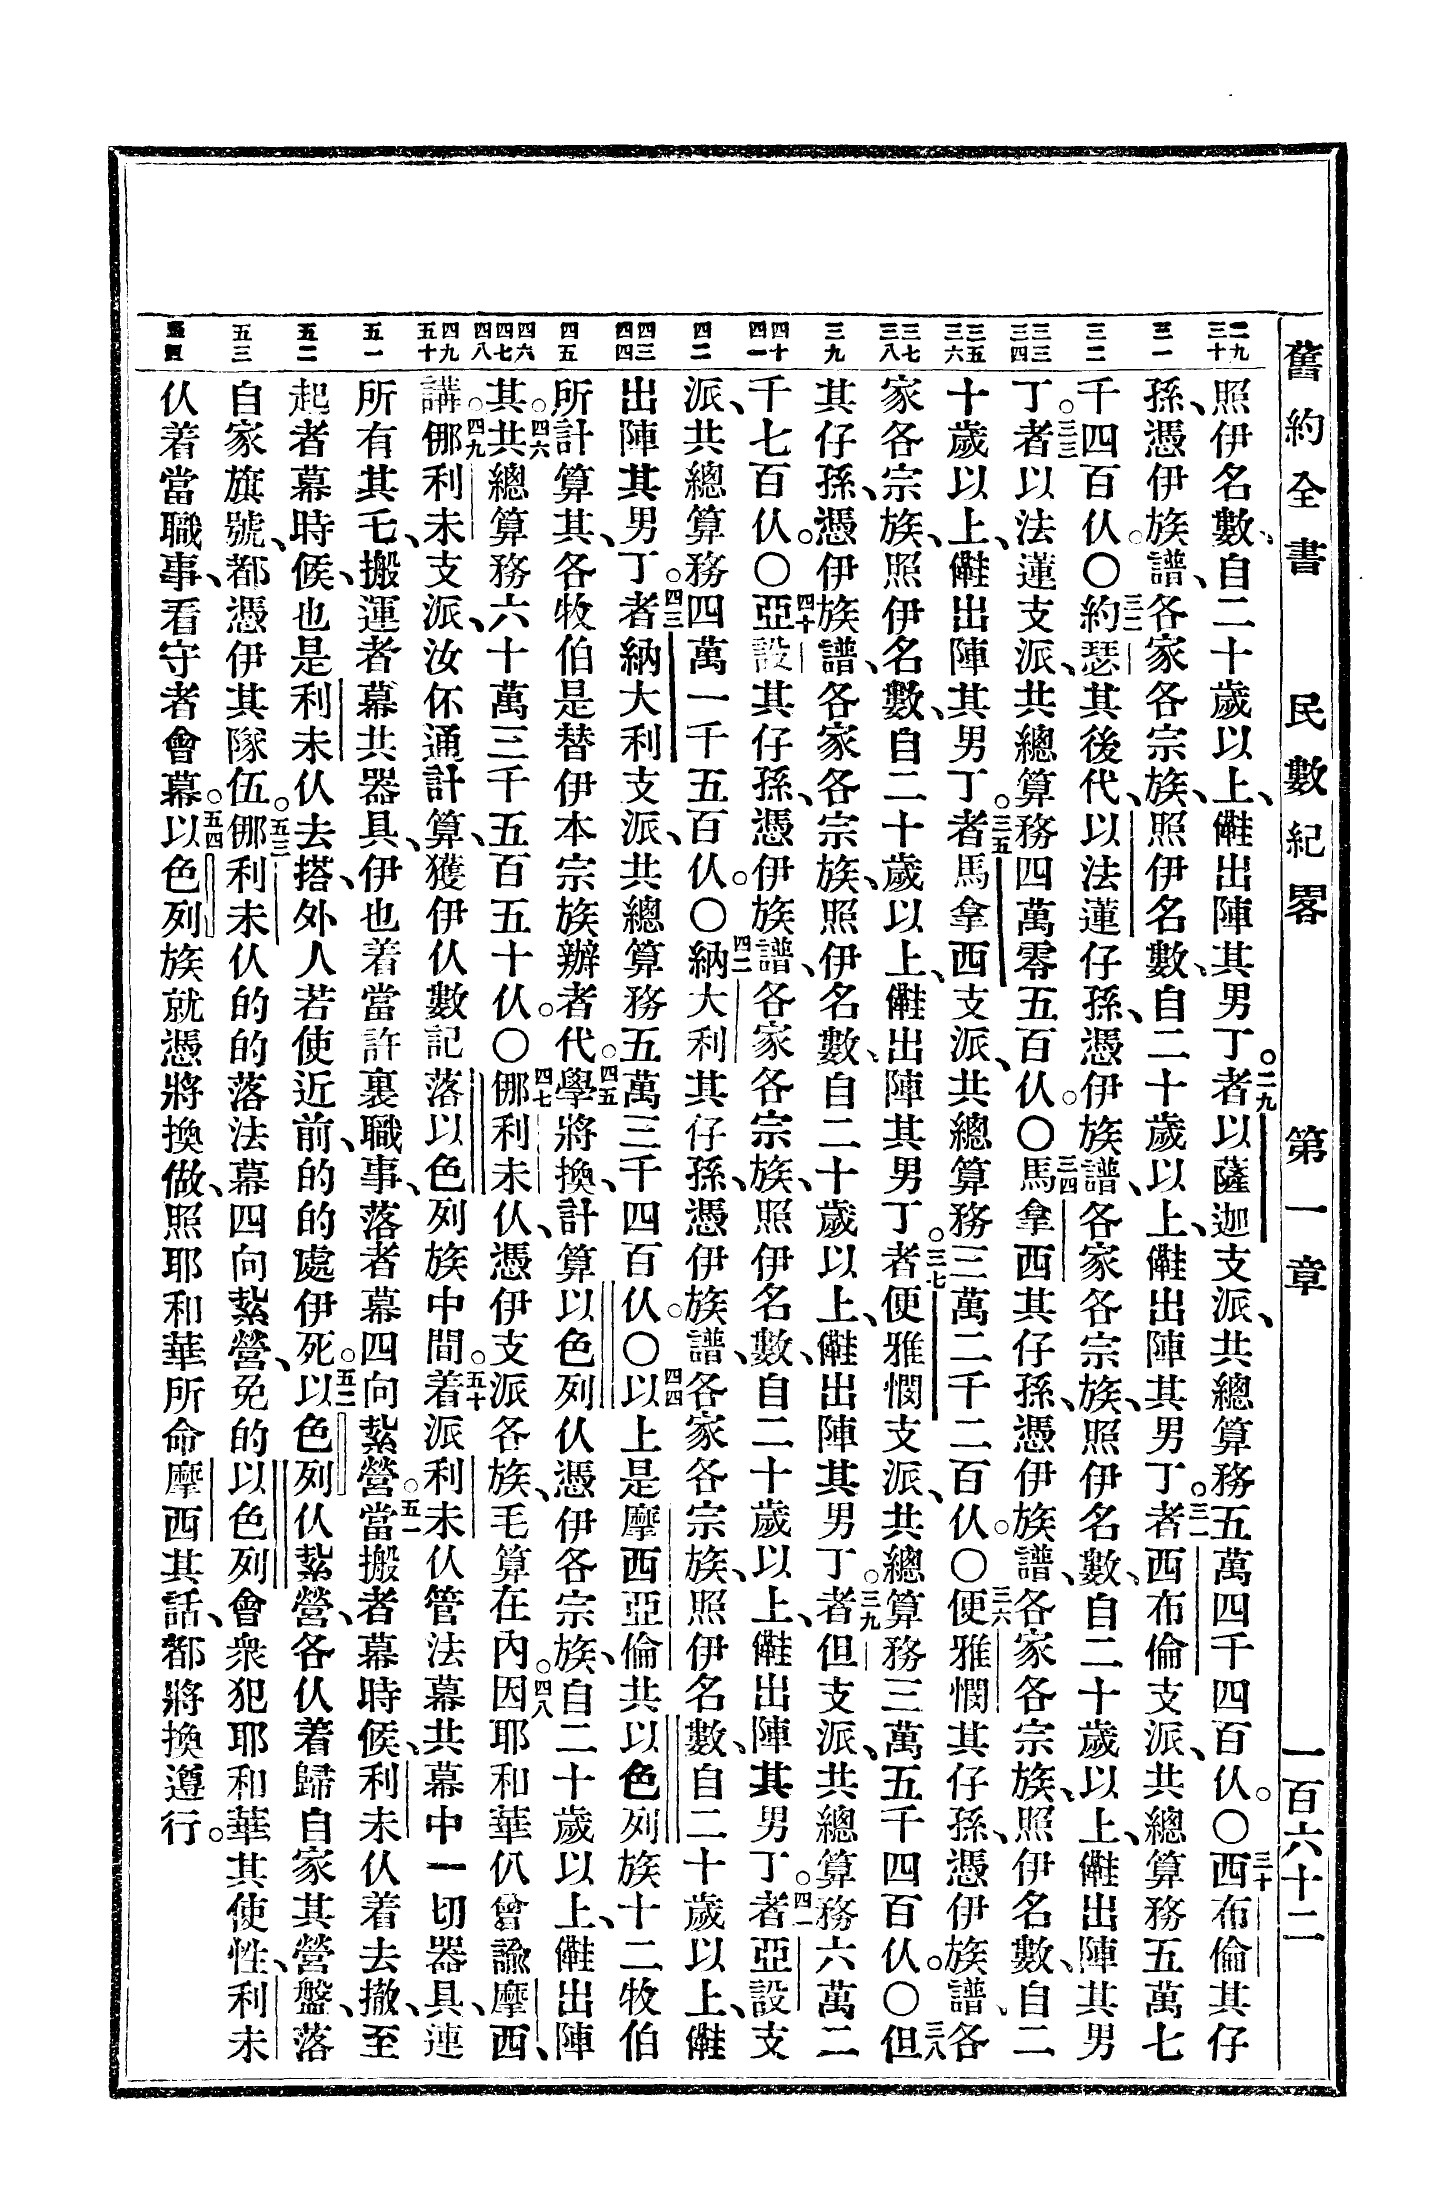 舊約全書　民數紀畧　第一章　一百六十二
二九 三十
照伊名數、自二十歲以上、𠆧出陣其男丁。二九者以薩迦支派、共總算務五萬四千四百仈。〇三十西布倫其仔
三一
孫、憑伊族譜、各家各宗族、照伊名數、自二十歲以上、𠆧出陣其男丁。三一者西布倫支派、共總算務五萬七
三二
千四百仈。〇三二約瑟其後代、以法蓮仔孫、憑伊族譜、各家各宗族、照伊名數、自二十歲以上、𠆧出陣其男
三三 三四
丁。三三者以法蓮支派、共總算務四萬零五百仈。〇三四馬拿西其仔孫、憑伊族譜、各家各宗族、照伊名數、自二
三五 三六
十歲以上、𠆧出陣其男丁。三五者馬拿西支派、共總算務三萬二千二百仈。〇三六便雅憫其仔孫、憑伊族譜、各
三七 三八
家各宗族、照伊名數、自二十歲以上、𠆧出陣其男丁。三七者便雅憫支派、共總算務三萬五千四百仈。〇三八但
三九
其仔孫、憑伊族譜、各家各宗族、照伊名數、自二十歲以上、𠆧出陣其男丁。三九者但支派、共總算務六萬二
四十 四一
千七百仈。〇四十亞設其仔孫、憑伊族譜、各家各宗族、照伊名數、自二十歲以上、𠆧出陣其男丁。四一者亞設支
四二
派、共總算務四萬一千五百仈。〇四二納大利其仔孫、憑伊族譜、各家各宗族、照伊名數、自二十歲以上、𠆧
四三 四四
出陣其男丁。四三者納大利支派、共總算務五萬三千四百仈。〇四四以上是摩西亞倫共以色列族十二牧伯
四五
所計算其、各牧伯是替伊本宗族辦者代。四五學將換、計算以色列仈憑伊各宗族、自二十歲以上、𠆧出陣
四六 四七 四八
其。四六共總算務六十萬三千五百五十仈。〇四七𪜶利未仈、憑伊支派各族、毛算在內。四八因耶和華仈曾諭摩西、
四九 五十
講。四九𪜶利未支派、汝伓通計算、獲伊仈數記落以色列族中間。五十着派利未仈管法幕共幕中一切器具、連
五一
所有其乇、搬運者幕共器具、伊也着當許裏職事、落者幕四向紮營。五一當搬者幕時候、利未仈着去撤、至
五二
起者幕時候、也是利未仈去搭、外人若使近前、的的處伊死。五二以色列仈紮營、各仈着歸自家其營盤、落
五三
自家旗號、都憑伊其隊伍。五三𪜶利未仈的的落法幕四向紮營、免的以色列會衆犯耶和華其使性、利未
五四
仈着當職事、看守者會幕。五四以色列族就憑將換做、照耶和華所命摩西其話、都將換遵行。